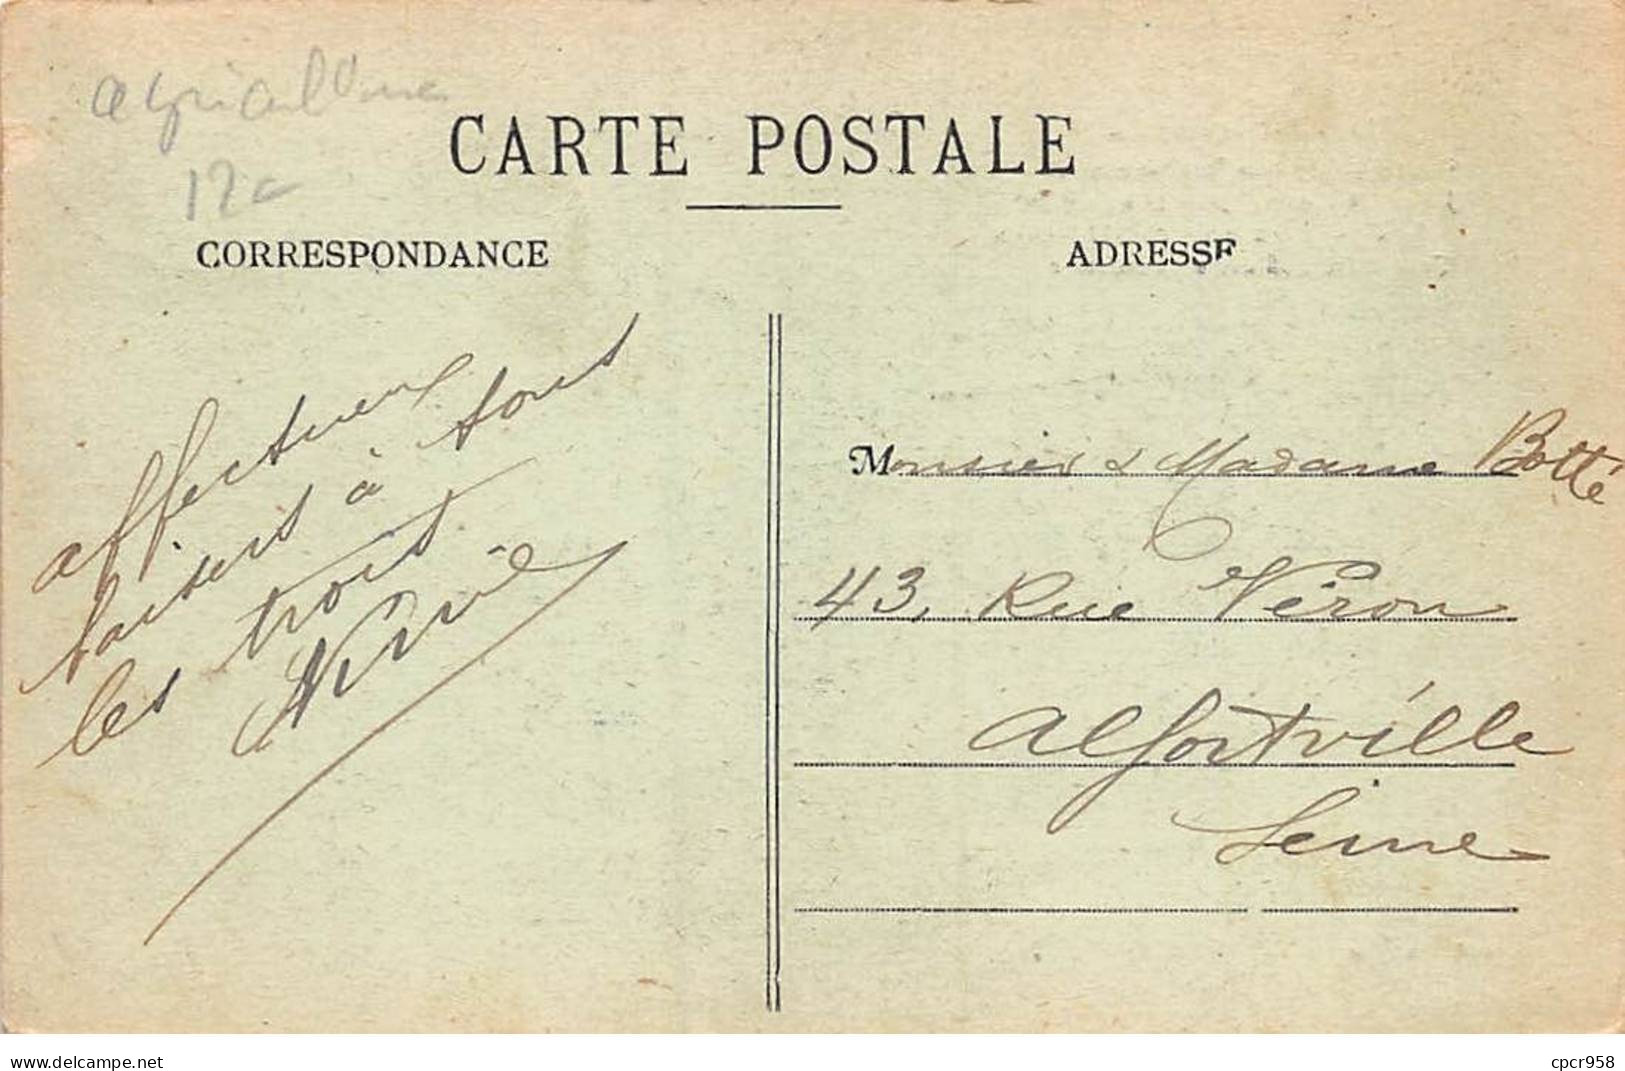 agriculture
CARTE POSTALE
CORRESPONDANCE
ADRESSE
affectueux
baisers à tous
les trois
Monsieur & Madame Botté
43, Rue Véron
Alfortville
Seine
delcampe.net
cpcr958